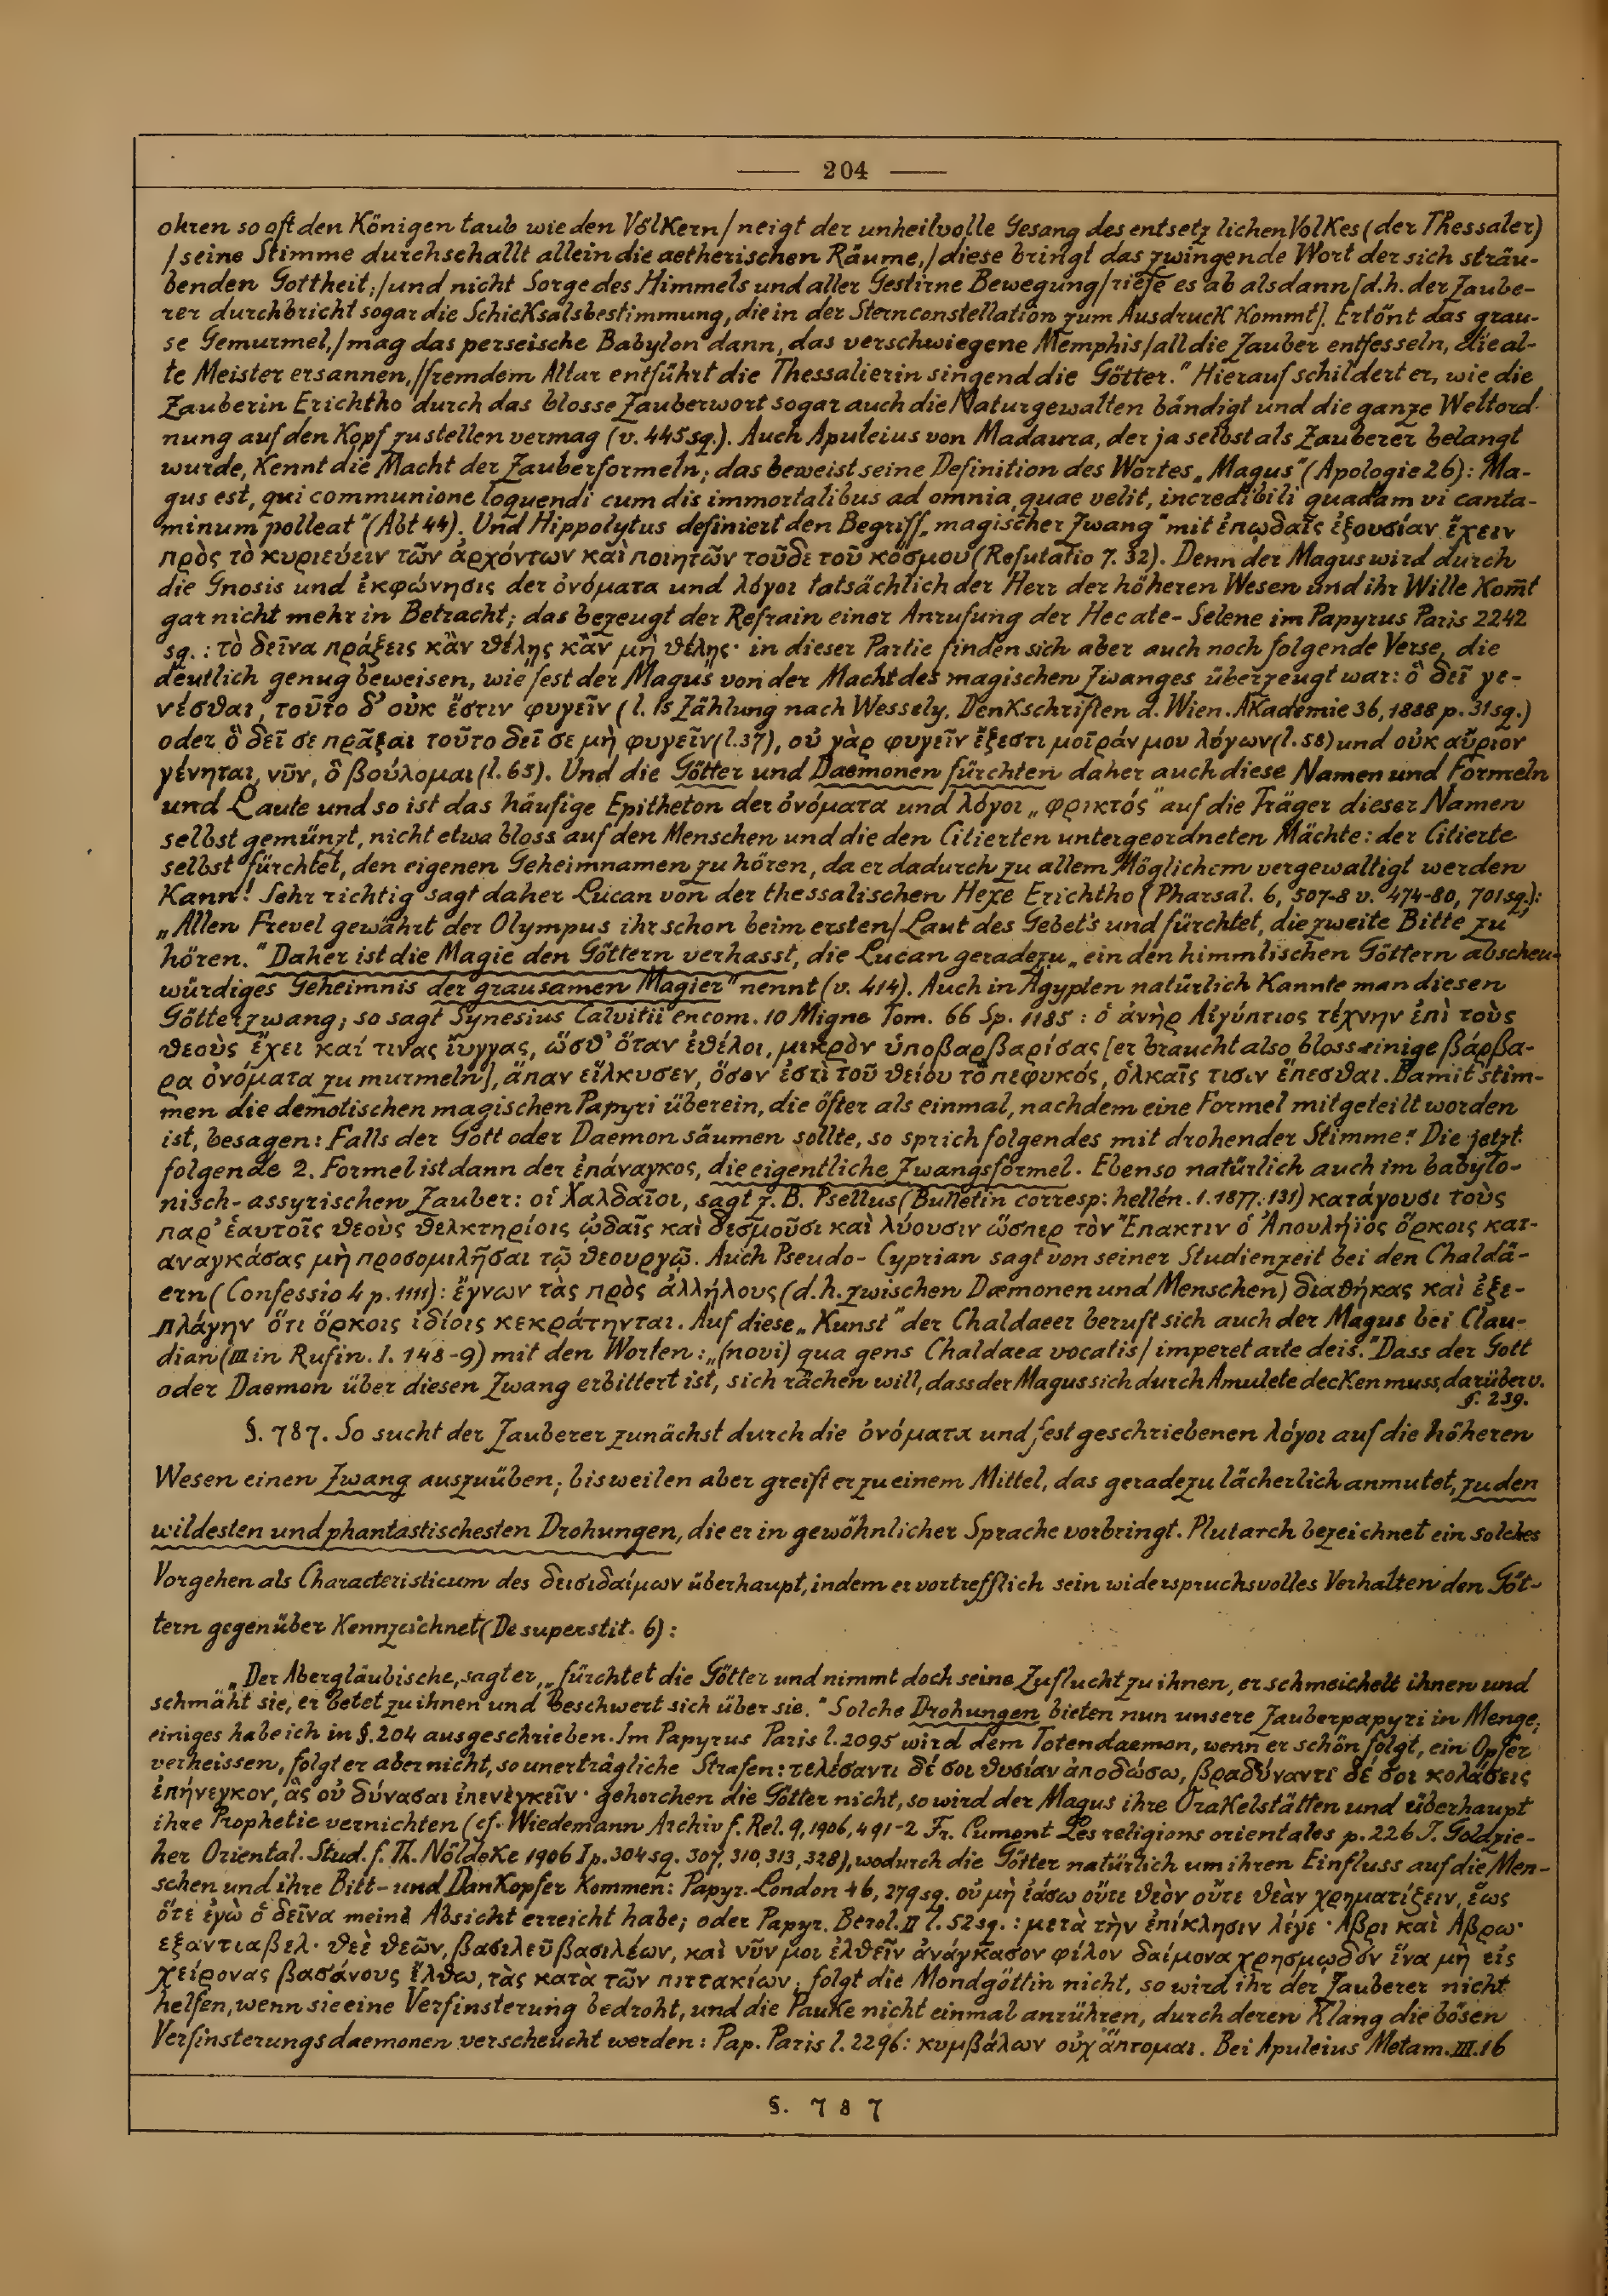 — 204 —
ohren so oft den Königen taub wie den Völkern / neigt der unheilvolle Gesang des entsetzlichen Volkes (der Thessaler)
/ seine Stimme durchschallt allein die aetherischen Räume, / diese bringt das zwingende Wort der sich sträu-
benden Gottheit; / und nicht Sorge des Himmels und aller Gestirne Bewegung / riefe es ab alsdann [d.h. der Zaube-
rer durchbricht sogar die Schicksalsbestimmung, die in der Sternconstellation zum Ausdruck kommt]. Ertönt das grau-
se Gemurmel, / mag das perseische Babylon dann, das verschwiegene Memphis / all die Zauber entfesseln, die al-
te Meister ersannen, / fremdem Altar entführt die Thessalierin singend die Götter." Hierauf schildert er, wie die
Zauberin Erichtho durch das blosse Zauberwort sogar auch die Naturgewalten bändigt und die ganze Weltord-
nung auf den Kopf zu stellen vermag (v. 445 sq.). Auch Apuleius von Madaura, der ja selbst als Zauberer belangt
wurde, kennt die Macht der Zauberformeln; das beweist seine Definition des Wortes „Magus" (Apologie 26): Ma-
gus est, qui communione loquendi cum dis immortalibus ad omnia, quae velit, incredibili quadam vi canta-
minum polleat" (Abt 44). Und Hippolytus definiert den Begriff „magischer Zwang" mit ἐπῳδαῖς ἐξουσίαν ἔχειν
πρὸς τὸ κυριεύειν τῶν ἀρχόντων καὶ ποιητῶν τοῦδε τοῦ κόσμου (Refutatio 7. 32). Denn der Magus wird durch
die Gnosis und ἐκφώνησις der ὀνόματα und λόγοι tatsächlich der Herr der höheren Wesen und ihr Wille kom̄t
gar nicht mehr in Betracht; das bezeugt der Refrain einer Anrufung der Hecate-Selene im Papyrus Paris 2242
sq.: τὸ δεῖνα πράξεις κἂν θέλῃς κἂν μὴ θέλῃς· in dieser Partie finden sich aber auch noch folgende Verse, die
deutlich genug beweisen, wie fest der Magus von der Macht des magischen Zwanges überzeugt war: ὃ δεῖ γε-
νέσθαι, τοῦτο δ' οὐκ ἔστιν φυγεῖν (l. 15 Zählung nach Wessely, Denkschriften d. Wien. Akademie 36, 1888 p. 31 sq.)
oder ὃ δεῖ σε πρᾶξαι τοῦτο δεῖ σε μὴ φυγεῖν (l. 37), οὐ γὰρ φυγεῖν ἔξεστι μοῖράν μου λόγων (l. 58) und οὐκ αὔριον
γένηται, νῦν, ὃ βούλομαι (l. 65). Und die Götter und Daemonen fürchten daher auch diese Namen und Formeln
und Laute und so ist das häufige Epitheton der ὀνόματα und λόγοι „φρικτός" auf die Träger dieser Namen
selbst gemünzt, nicht etwa bloss auf den Menschen und die den Citierten untergeordneten Mächte: der Citierte
selbst fürchtet, den eigenen Geheimnamen zu hören, da er dadurch zu allem Möglichem vergewaltigt werden
kann! Sehr richtig sagt daher Lucan von der thessalischen Hexe Erichtho (Pharsal. 6, 507-8 v. 474-80, 701 sq.):
„Allen Frevel gewährt der Olympus ihr schon beim ersten / Laut des Gebet's und fürchtet, die zweite Bitte zu
hören." Daher ist die Magie den Göttern verhasst, die Lucan geradezu „ein den himmlischen Göttern abscheu-
würdiges Geheimnis der grausamen Magier" nennt (v. 414). Auch in Ägypten natürlich kannte man diesen
Götterzwang; so sagt Synesius Calvitii encom. 10 Migne Tom. 66 Sp. 1185: ὁ ἀνὴρ Αἰγύπτιος τέχνην ἐπὶ τοὺς
θεοὺς ἔχει καί τινας ἴυγγας, ὥσθ' ὅταν ἐθέλοι, μικρὸν ὑποβαρβαρίσας [er braucht also bloss einige βάρβα-
ρα ὀνόματα zu murmeln], ἅπαν εἵλκυσεν, ὅσον ἐστὶ τοῦ θείου τὸ πεφυκός, ὁλκαῖς τισιν ἕπεσθαι. Damit stim-
men die demotischen magischen Papyri überein, die öfter als einmal, nachdem eine Formel mitgeteilt worden
ist, besagen: Falls der Gott oder Daemon säumen sollte, so sprich folgendes mit drohender Stimme:" Die jetzt
folgende 2. Formel ist dann der ἐπάναγκος, die eigentliche Zwangsformel. Ebenso natürlich auch im babylo-
nisch-assyrischen Zauber: οἱ Χαλδαῖοι, sagt z. B. Psellus (Bulletin corresp. hellén. 1. 1877. 131) κατάγουσι τοὺς
παρ' ἑαυτοῖς θεοὺς θελκτηρίοις ᾠδαῖς καὶ δεσμοῦσι καὶ λύουσιν ὥσπερ τὸν Ἔπακτιν ὁ Ἀπουλήϊος ὅρκοις κατ-
αναγκάσας μὴ προσομιλῆσαι τῷ θεουργῷ. Auch Pseudo-Cyprian sagt von seiner Studienzeit bei den Chaldä-
ern (Confessio 4 p. 1111): ἔγνων τὰς πρὸς ἀλλήλους (d. h. zwischen Dæmonen und Menschen) διαθήκας καὶ ἐξε-
πλάγην ὅτι ὅρκοις ἰδίοις κεκράτηνται. Auf diese „Kunst" der Chaldaeer beruft sich auch der Magus bei Clau-
dian (III in Rufin. I. 148-9) mit den Worten: „(novi) qua gens Chaldaea vocatis / imperet arte deis." Dass der Gott
oder Daemon über diesen Zwang erbittert ist, sich rächen will, dass der Magus sich durch Amulete decken muss, darüber v.
§. 239.
§. 787. So sucht der Zauberer zunächst durch die ὀνόματα und fest geschriebenen λόγοι auf die höheren
Wesen einen Zwang auszuüben; bisweilen aber greift er zu einem Mittel, das geradezu lächerlich anmutet, zu den
wildesten und phantastischesten Drohungen, die er in gewöhnlicher Sprache vorbringt. Plutarch bezeichnet ein solches
Vorgehen als Characteristicum des δεισιδαίμων überhaupt, indem er vortrefflich sein widerspruchsvolles Verhalten den Göt-
tern gegenüber kennzeichnet (De superstit. 6):
„Der Abergläubische, sagt er, „fürchtet die Götter und nimmt doch seine Zuflucht zu ihnen, er schmeichelt ihnen und
schmäht sie, er betet zu ihnen und beschwert sich über sie." Solche Drohungen bieten nun unsere Zauberpapyri in Menge;
einiges habe ich in §. 204 ausgeschrieben. Im Papyrus Paris l. 2095 wird dem Totendaemon, wenn er schön folgt, ein Opfer
verheissen, folgt er aber nicht, so unerträgliche Strafen: τελέσαντι δέ σοι θυσίαν ἀποδώσω, βραδύναντι δέ σοι κολάσεις
ἐπήνεγκον, ἃς οὐ δύνασαι ἐπενεγκεῖν· gehorchen die Götter nicht, so wird der Magus ihre Orakelstätten und überhaupt
ihre Prophetie vernichten (cf. Wiedemann Archiv f. Rel. 9, 1906, 491-2 Fr. Cumont Les religions orientales p. 226 J. Goldzie-
her Oriental. Stud. f. Th. Nöldeke 1906 I p. 304 sq. 307, 310, 313, 328), wodurch die Götter natürlich um ihren Einfluss auf die Men-
schen und ihre Bitt- und Dankopfer kommen: Papyr. London 46, 279 sq. οὐ μὴ ἐάσω οὔτε θεὸν οὔτε θεὰν χρηματίζειν, ἕως
ὅτε ἐγὼ ὁ δεῖνα meine Absicht erreicht habe; oder Papyr. Berol. II l. 52 sq.: μετὰ τὴν ἐπίκλησιν λέγε· Αβρι καὶ Αβρω·
εξαντιαβελ· θεὲ θεῶν, βασιλεῦ βασιλέων, καὶ νῦν μοι ἐλθεῖν ἀνάγκασον φίλον δαίμονα χρησμῳδόν ἵνα μὴ εἰς
χείρονας βασάνους ἔλθω, τὰς κατὰ τῶν πιττακίων; folgt die Mondgöttin nicht, so wird ihr der Zauberer nicht
helfen, wenn sie eine Verfinsterung bedroht, und die Pauke nicht einmal anrühren, durch deren Klang die bösen
Verfinsterungsdaemonen verscheucht werden: Pap. Paris l. 2296: κυμβάλων οὐχ ἅπτομαι. Bei Apuleius Metam. III. 16
§. 787